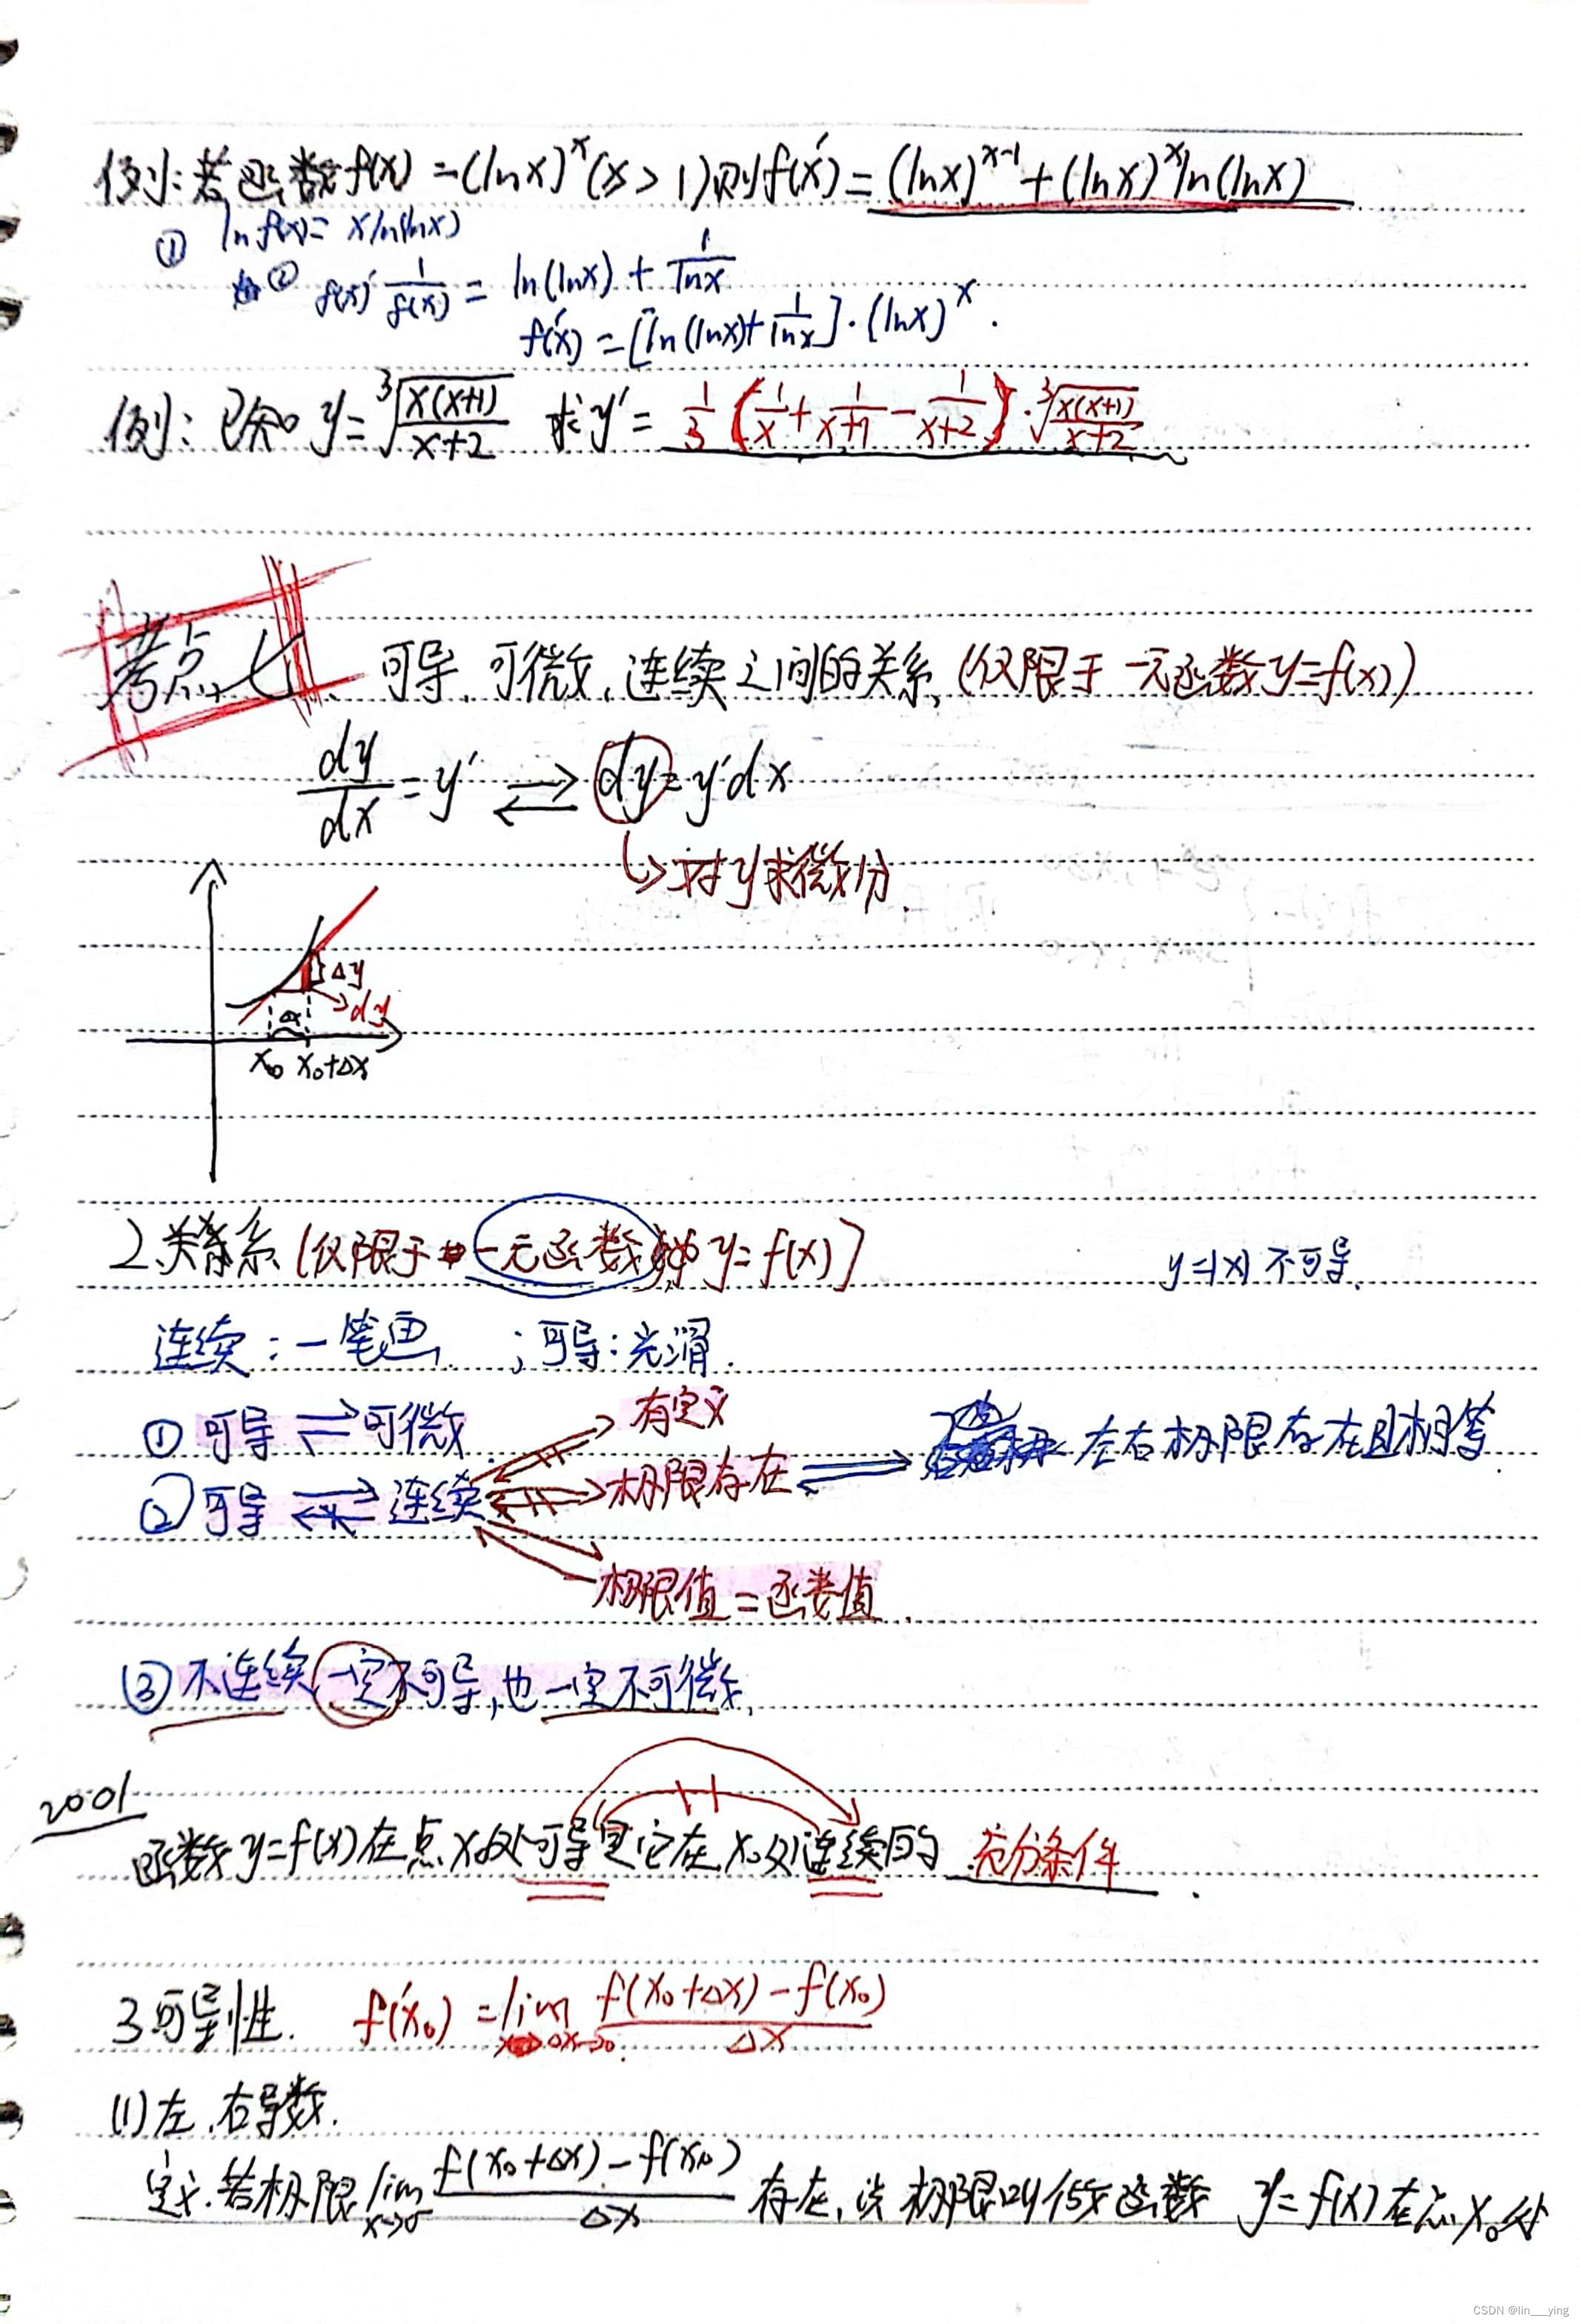 例:若函数f(x)=(lnx)^x(x>1)则f'(x)=(lnx)^{x-1}+(lnx)^x ln(lnx)
① lnf(x)=xln(lnx)
② f(x)' 1/f(x) = ln(lnx)+1/lnx
f'(x)=[ln(lnx)+1/lnx]·(lnx)^x.
例:已知 y=∛(x(x+1)/(x+2)) 求y'= 1/3(1/x+1/(x+1)-1/(x+2))·∛(x(x+1)/(x+2))
考点七、可导、可微、连续之间的关系,(仅限于一元函数y=f(x))
dy/dx=y' ⇌ dy=y'dx
↳对y求微分.
Δy
dy
Δx
x₀ x₀+Δx
2.关系(仅限于一元函数 y=f(x)]
y=|x| 不可导.
连续:一笔画 ;可导:光滑.
有定义
① 可导⇌可微
极限存在 ⇌ 左右极限存在且相等
② 可导⇌连续
极限值=函数值.
③ 不连续一定不可导,也一定不可微.
2001
函数y=f(x)在点x₀处可导是它在x₀处连续的 充分条件.
3.可导性. f'(x₀)=lim Δx→0 (f(x₀+Δx)-f(x₀))/Δx
(1)左、右导数.
定义.若极限lim x→0⁻ (f(x₀+Δx)-f(x₀))/Δx 存在,该极限叫做函数 y=f(x)在点x₀处
CSDN @lin___ying